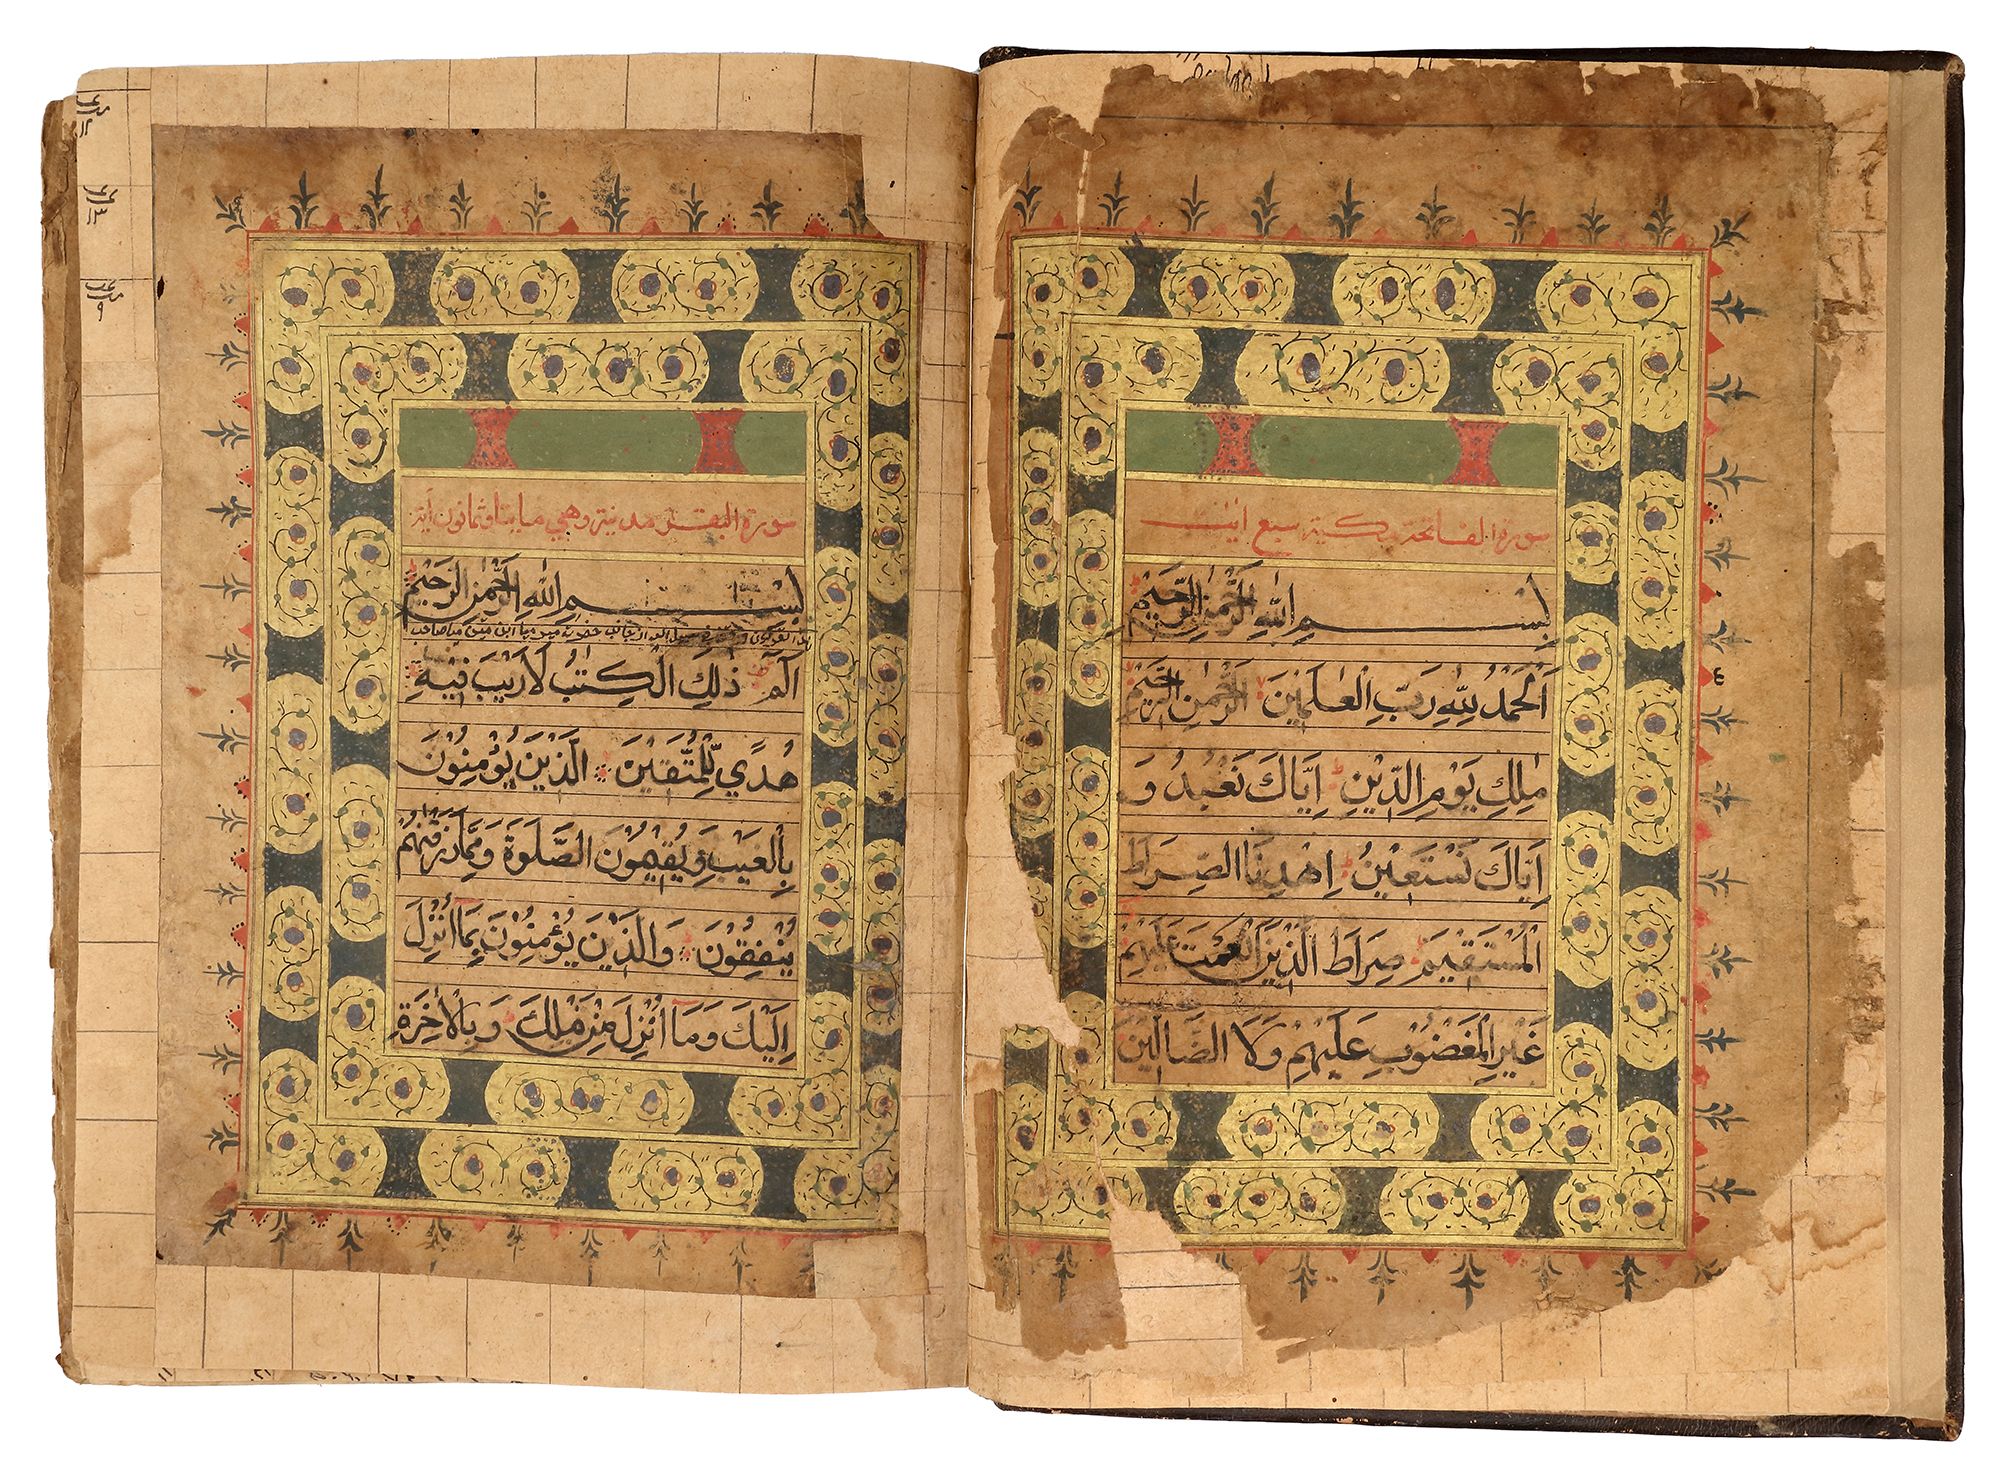 سورة الفاتحة مكية سبع ايت
بِسْمِ اللهِ الرَّحْمٰنِ الرَّحِيْمِ
اَلْحَمْدُ لِلّٰهِ رَبِّ الْعٰلَمِيْنَ الرَّحْمٰنِ الرَّحِيْمِ
مٰلِكِ يَوْمِ الدِّيْنِ اِيَّاكَ نَعْبُدُ وَ
اِيَّاكَ نَسْتَعِيْنُ اِهْدِنَا الصِّرَاطَ
الْمُسْتَقِيْمَ صِرَاطَ الَّذِيْنَ اَنْعَمْتَ عَلَيْهِمْ
غَيْرِ الْمَغْضُوْبِ عَلَيْهِمْ وَلَا الضَّالِّيْنَ
سورة البقرة مدنية وهي مايتا وثمانون أية
بِسْمِ اللهِ الرَّحْمٰنِ الرَّحِيْمِ
الٓمٓ ذٰلِكَ الْكِتٰبُ لَا رَيْبَ فِيْهِ
هُدًي لِّلْمُتَّقِيْنَ الَّذِيْنَ يُؤْمِنُوْنَ
بِالْغَيْبِ وَيُقِيْمُوْنَ الصَّلٰوةَ وَمِمَّا رَزَقْنٰهُمْ
يُنْفِقُوْنَ وَالَّذِيْنَ يُؤْمِنُوْنَ بِمَآ أُنْزِلَ
اِلَيْكَ وَمَآ اُنْزِلَ مِنْ قَبْلِكَ وَبِالْاٰخِرَةِ
١٢
١٣
٩